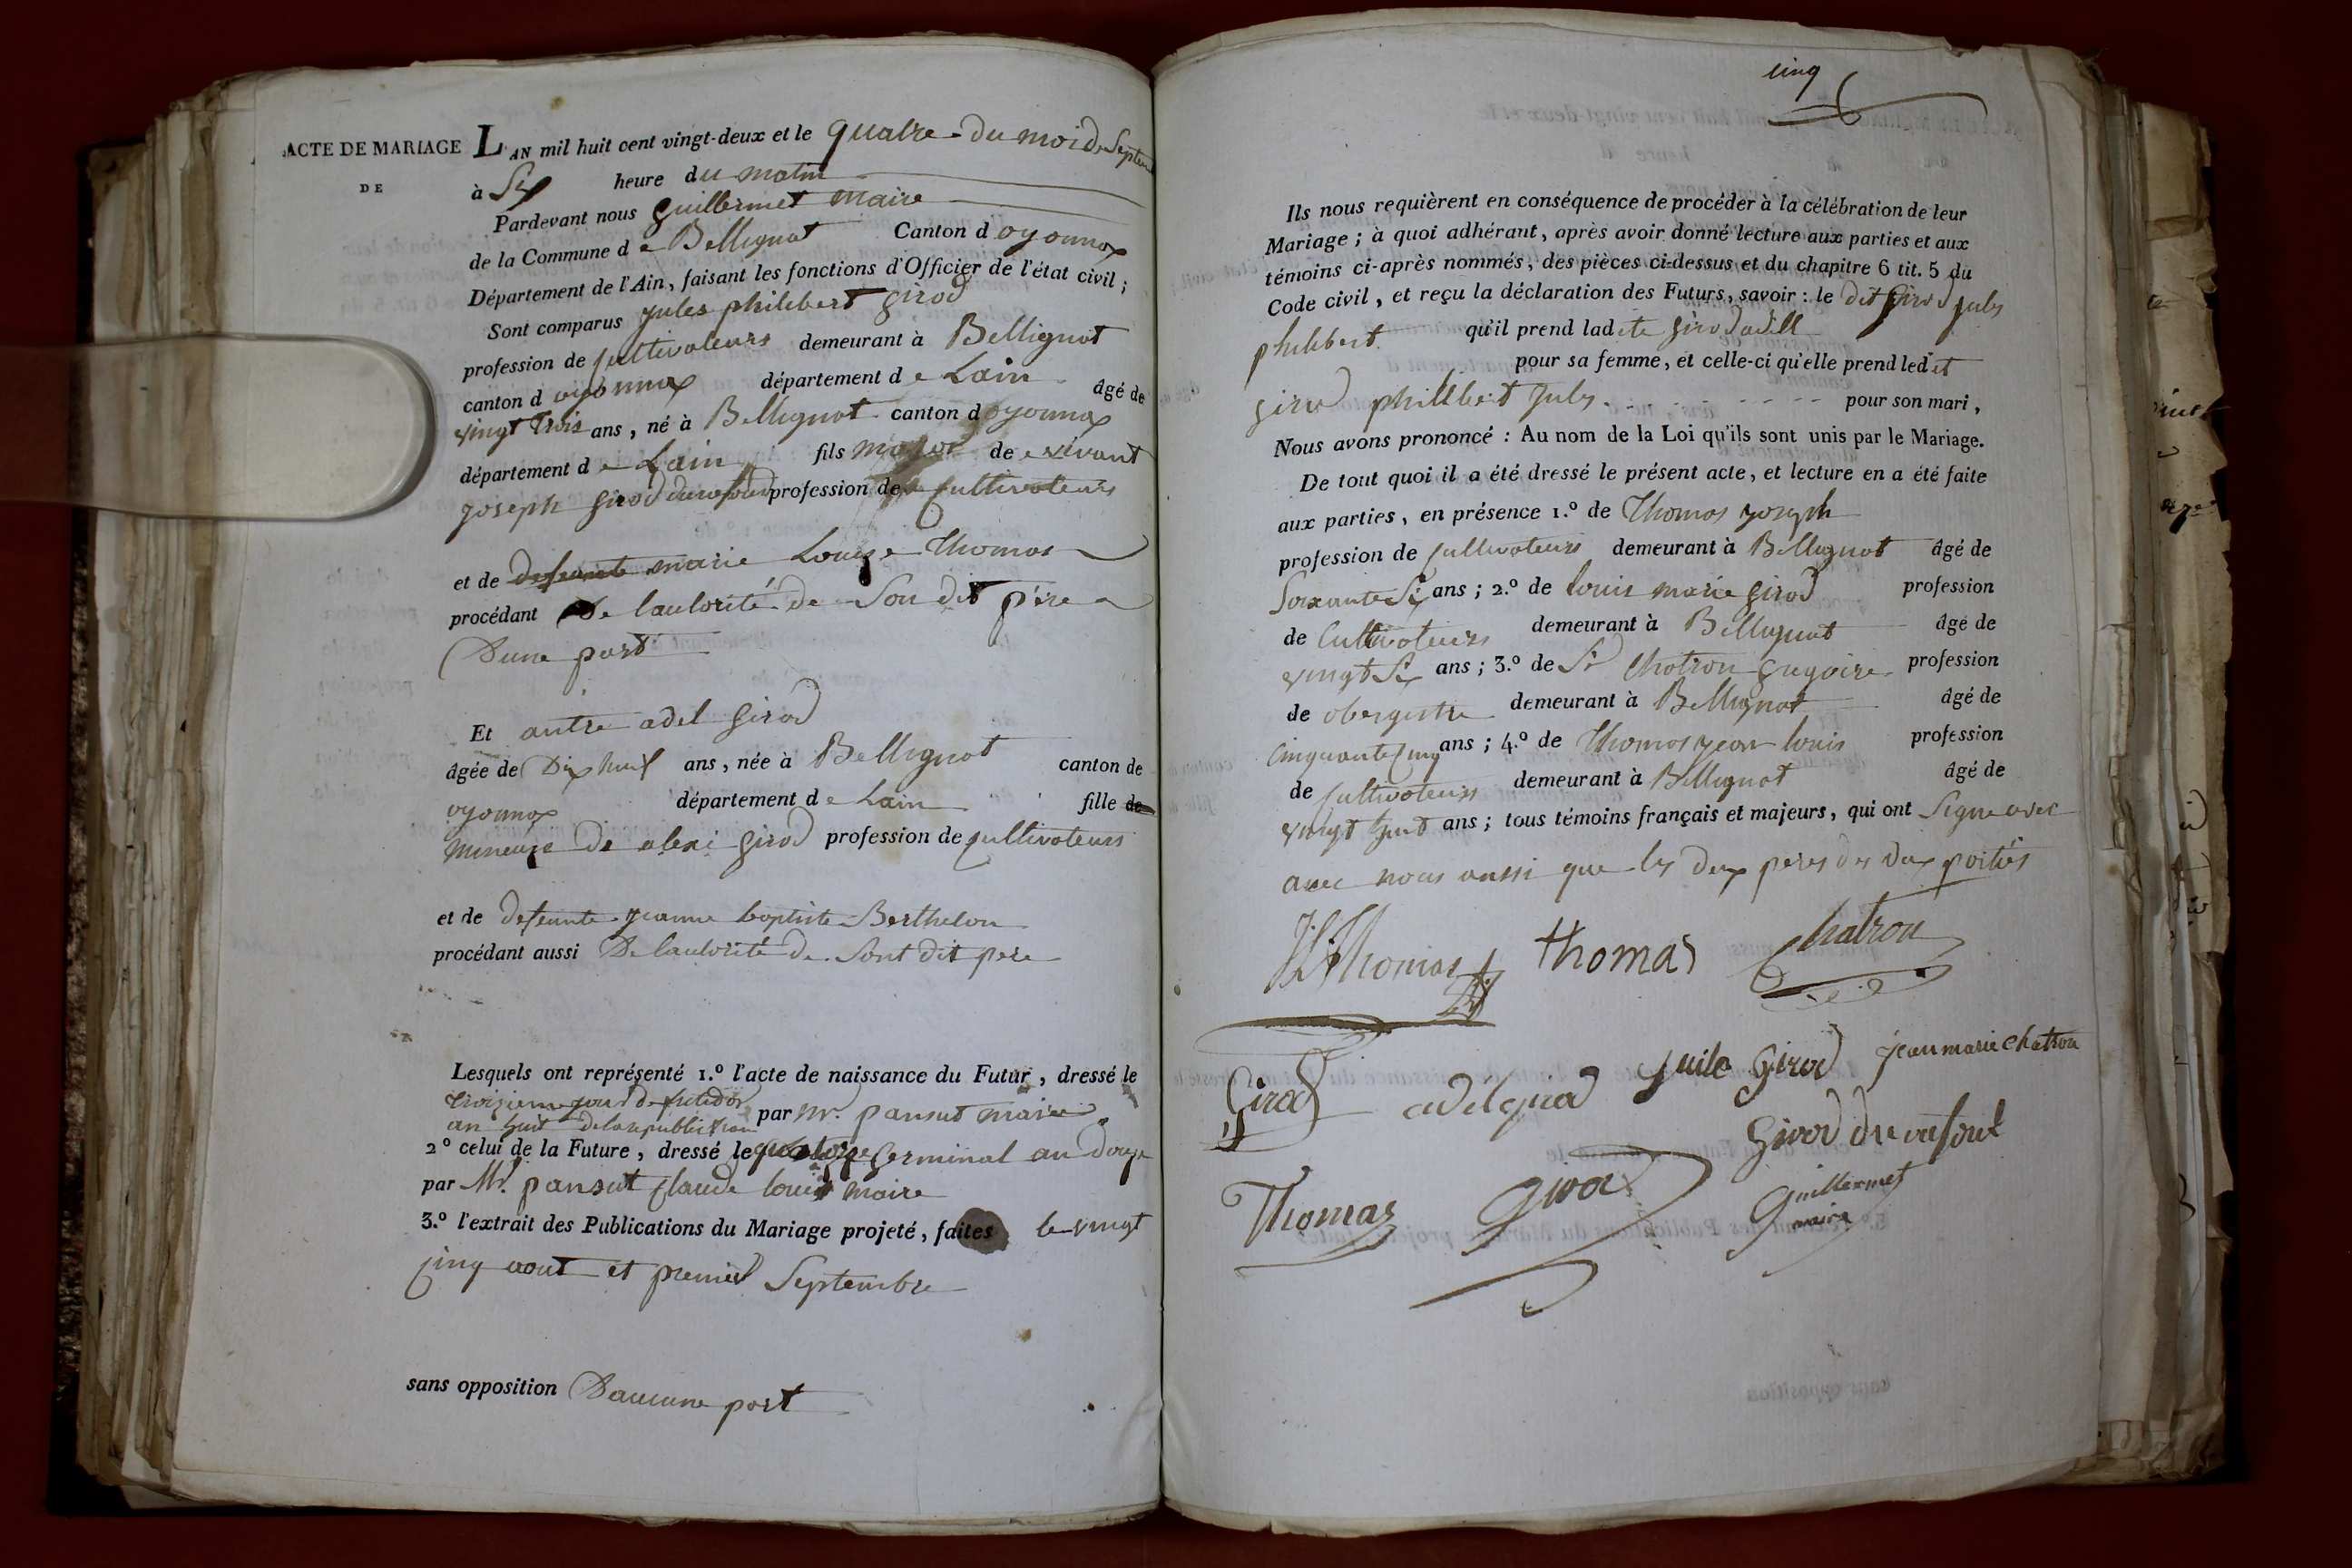 ACTE DE MARIAGE
DE
L'AN mil huit cent vingt-deux et le quatre du moi de Septem
à Six heure du matin
Pardevant nous Guillermet maire
de la Commune de Bellignat Canton d oyonnax
Département de l'Ain, faisant les fonctions d'Officier de l'état civil ;
Sont comparus jules philibert girod
profession de Cultivateurs demeurant à Bellignat
canton d oyonnax département de Lain âgé de
vingt trois ans, né à Bellignat canton d oyonnax
département de Lain fils major de vivant
joseph girod profession de Cultivateurs
et de defeunte marie Louise Thomas
procédant De lautorité de Son dit père
Dune part
Et autre adel girod
âgée de Dix huit ans, née à Bellignat canton de
oyonnax département de Lain fille de
mineure de alexi girod profession de cultivateurs
et de defeunte jeanne baptiste Berthelon
procédant aussi De lautorité de Sont dit pere
Lesquels ont représenté 1.º l'acte de naissance du Futur, dressé le
troizieme jour de
an huit par mr. pansut maire
2º celui de la Future, dressé le quatorze Germinal an Douze
par Mr. pansut Claude louis maire
3.º l'extrait des Publications du Mariage projeté, faites le vingt
cinq aout et premier Septembre
sans opposition Daucune part
cinq
Ils nous requièrent en conséquence de procéder à la célébration de leur
Mariage ; à quoi adhérant, après avoir donné lecture aux parties et aux
témoins ci-après nommés, des pièces ci-dessus et du chapitre 6 tit. 5 du
Code civil, et reçu la déclaration des Futurs, savoir : le dit Girod jules
philibert qu'il prend ladite girod adill
pour sa femme, et celle-ci qu'elle prend ledit
girod philibert jules pour son mari,
Nous avons prononcé : Au nom de la Loi qu'ils sont unis par le Mariage.
De tout quoi il a été dressé le présent acte, et lecture en a été faite
aux parties, en présence 1.º de Thomas joseph
profession de Cultivateurs demeurant à Bellignat âgé de
Soixante Six ans ; 2.º de louis marie girod profession
de Cultivateurs demeurant à Bellignat âgé de
vingt Six ans ; 3.º de Sr Chatron gregoire profession
de obergistre demeurant à Bellignat âgé de
cinquante cinq ans ; 4.º de Thomas jean louis profession
de Cultivateurs demeurant à Bellignat âgé de
vingt huit ans ; tous témoins français et majeurs, qui ont Signe avec
avec nous aussi que les deux peres des deux partiés
Thomas thomas Chatron
Girod adel girod Girod jean marie chatron
Girod
Thomas girod Guillermet
maire